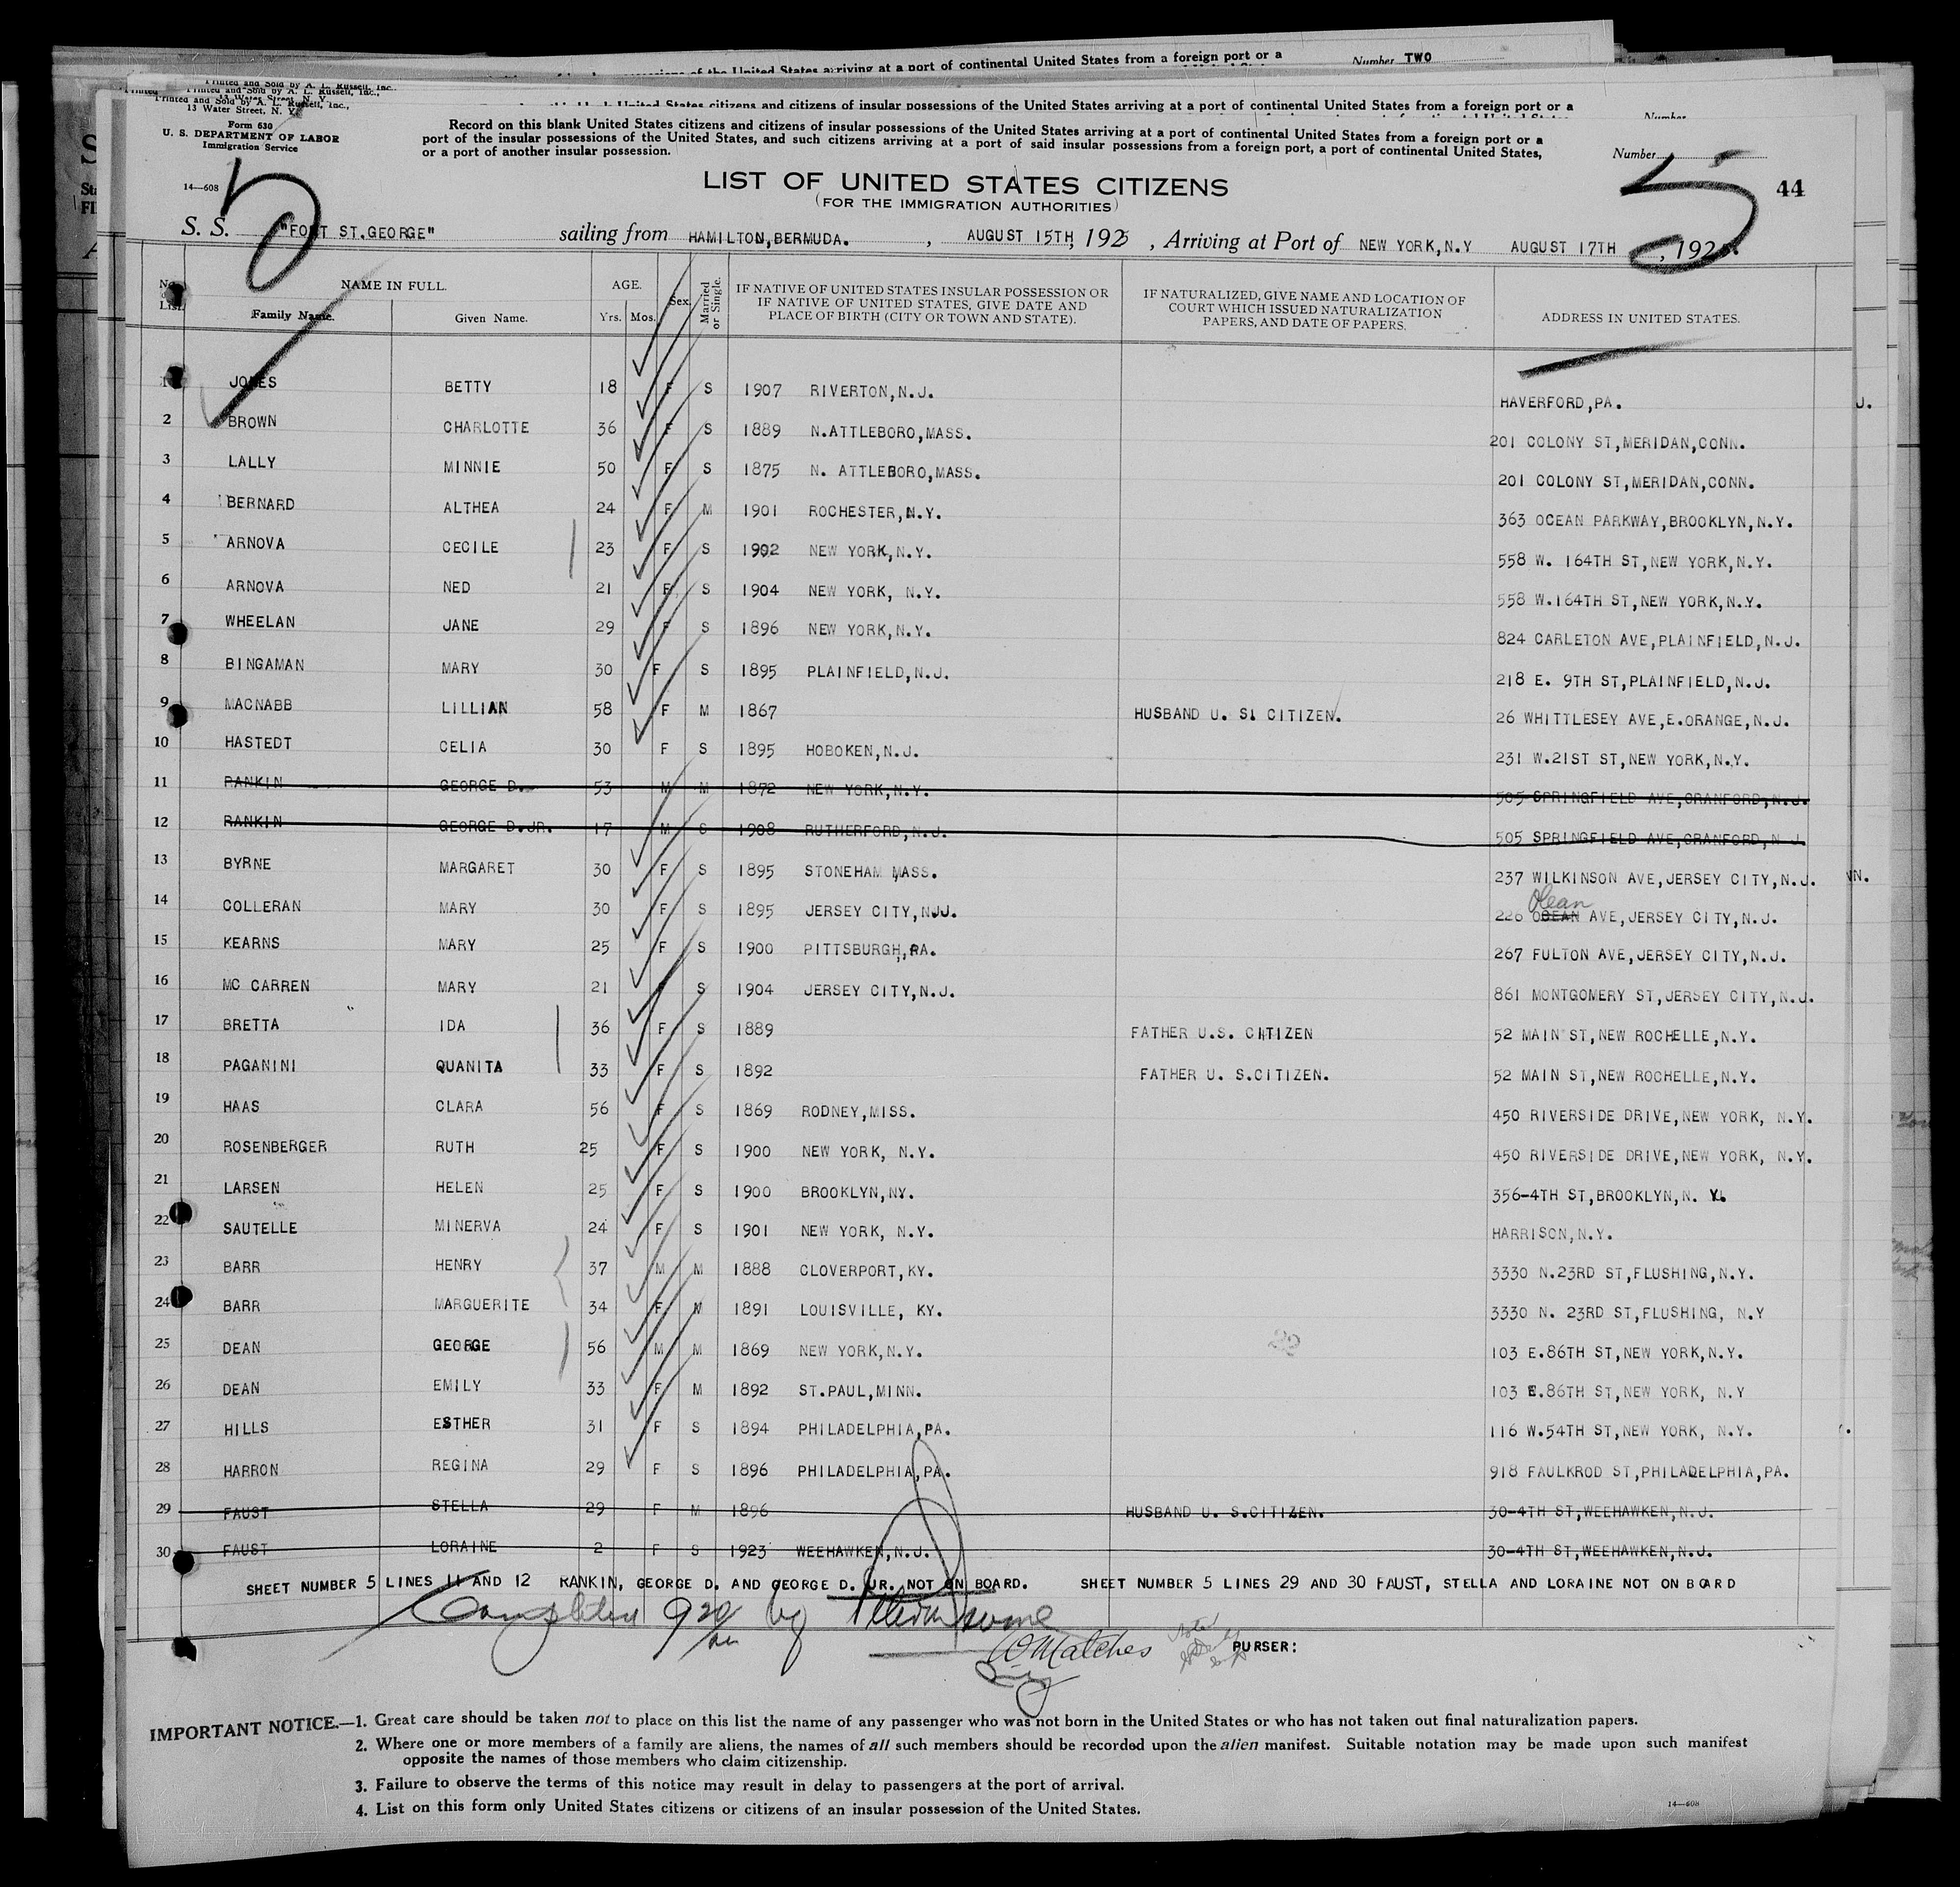 of the United States arriving at a port of continental United States from a foreign port or a Number TWO
Printed and Sold by A. L. Russell, Inc.,
13 Water Street, N. Y.
Form 630
U. S. DEPARTMENT OF LABOR
Immigration Service
14—608
Record on this blank United States citizens and citizens of insular possessions of the United States arriving at a port of continental United States from a foreign port or a
port of the insular possessions of the United States, and such citizens arriving at a port of said insular possessions from a foreign port, a port of continental United States,
or a port of another insular possession.
Number 5
44
LIST OF UNITED STATES CITIZENS
(FOR THE IMMIGRATION AUTHORITIES)
S. S. "FORT ST.GEORGE" sailing from HAMILTON,BERMUDA. , AUGUST 15TH, 1925 , Arriving at Port of NEW YORK,N.Y AUGUST 17TH , 1925.
No. List. NAME IN FULL. Family Name. Given Name. AGE. Yrs. Mos. Sex. Married or Single. IF NATIVE OF UNITED STATES INSULAR POSSESSION OR IF NATIVE OF UNITED STATES, GIVE DATE AND PLACE OF BIRTH (CITY OR TOWN AND STATE). IF NATURALIZED, GIVE NAME AND LOCATION OF COURT WHICH ISSUED NATURALIZATION PAPERS, AND DATE OF PAPERS. ADDRESS IN UNITED STATES.
1 JONES BETTY 18 F S 1907 RIVERTON,N.J. HAVERFORD,PA.
2 BROWN CHARLOTTE 36 F S 1889 N.ATTLEBORO,MASS. 201 COLONY ST,MERIDAN,CONN.
3 LALLY MINNIE 50 F S 1875 N. ATTLEBORO,MASS. 201 COLONY ST,MERIDAN,CONN.
4 BERNARD ALTHEA 24 F M 1901 ROCHESTER,N.Y. 363 OCEAN PARKWAY,BROOKLYN,N.Y.
5 ARNOVA CECILE 23 F S 1902 NEW YORK,N.Y. 558 W. 164TH ST,NEW YORK,N.Y.
6 ARNOVA NED 21 F S 1904 NEW YORK, N.Y. 558 W.164TH ST,NEW YORK,N.Y.
7 WHEELAN JANE 29 F S 1896 NEW YORK,N.Y. 824 CARLETON AVE,PLAINFIELD,N.J.
8 BINGAMAN MARY 30 F S 1895 PLAINFIELD,N.J. 218 E. 9TH ST,PLAINFIELD,N.J.
9 MACNABB LILLIAN 58 F M 1867 HUSBAND U. S. CITIZEN. 26 WHITTLESEY AVE,E.ORANGE,N.J.
10 HASTEDT CELIA 30 F S 1895 HOBOKEN,N.J. 231 W.21ST ST,NEW YORK,N.Y.
11 RANKIN GEORGE D. 53 M M 1872 NEW YORK,N.Y. 505 SPRINGFIELD AVE,CRANFORD,N.J.
12 RANKIN GEORGE D.JR. 17 M S 1908 RUTHERFORD,N.J. 505 SPRINGFIELD AVE,CRANFORD,N.J.
13 BYRNE MARGARET 30 F S 1895 STONEHAM MASS. 237 WILKINSON AVE,JERSEY CITY,N.J.
14 COLLERAN MARY 30 F S 1895 JERSEY CITY,N.J. 226 OCEAN Olean AVE,JERSEY CITY,N.J.
15 KEARNS MARY 25 F S 1900 PITTSBURGH,PA. 267 FULTON AVE,JERSEY CITY,N.J.
16 MC CARREN MARY 21 F S 1904 JERSEY CITY,N.J. 861 MONTGOMERY ST,JERSEY CITY,N.J.
17 BRETTA IDA 36 F S 1889 FATHER U.S. CITIZEN 52 MAIN ST,NEW ROCHELLE,N.Y.
18 PAGANINI QUANITA 33 F S 1892 FATHER U. S.CITIZEN. 52 MAIN ST,NEW ROCHELLE,N.Y.
19 HAAS CLARA 56 F S 1869 RODNEY,MISS. 450 RIVERSIDE DRIVE,NEW YORK, N.Y.
20 ROSENBERGER RUTH 25 F S 1900 NEW YORK, N.Y. 450 RIVERSIDE DRIVE,NEW YORK, N.Y.
21 LARSEN HELEN 25 F S 1900 BROOKLYN,NY. 356-4TH ST,BROOKLYN,N. Y.
22 SAUTELLE MINERVA 24 F S 1901 NEW YORK, N.Y. HARRISON,N.Y.
23 BARR HENRY 37 M M 1888 CLOVERPORT,KY. 3330 N.23RD ST,FLUSHING,N.Y.
24 BARR MARGUERITE 34 F M 1891 LOUISVILLE, KY. 3330 N. 23RD ST,FLUSHING, N.Y
25 DEAN GEORGE 56 M M 1869 NEW YORK,N.Y. 103 E.86TH ST,NEW YORK,N.Y.
26 DEAN EMILY 33 F M 1892 ST.PAUL,MINN. 103 E.86TH ST,NEW YORK, N.Y
27 HILLS ESTHER 31 F S 1894 PHILADELPHIA,PA. 116 W.54TH ST,NEW YORK, N.Y.
28 HARRON REGINA 29 F S 1896 PHILADELPHIA,PA. 918 FAULKROD ST,PHILADELPHIA,PA.
29 FAUST STELLA 29 F M 1896 HUSBAND U. S.CITIZEN. 30-4TH ST,WEEHAWKEN,N.J.
30 FAUST LORAINE 2 F S 1923 WEEHAWKEN,N.J. 30-4TH ST,WEEHAWKEN,N.J.
SHEET NUMBER 5 LINES 11 AND 12 RANKIN, GEORGE D. AND GEORGE D. JR. NOT ON BOARD. SHEET NUMBER 5 LINES 29 AND 30 FAUST, STELLA AND LORAINE NOT ON BOARD
Completed 9 20 by
Matches PURSER:
IMPORTANT NOTICE.—1. Great care should be taken not to place on this list the name of any passenger who was not born in the United States or who has not taken out final naturalization papers.
2. Where one or more members of a family are aliens, the names of all such members should be recorded upon the alien manifest. Suitable notation may be made upon such manifest
opposite the names of those members who claim citizenship.
3. Failure to observe the terms of this notice may result in delay to passengers at the port of arrival.
4. List on this form only United States citizens or citizens of an insular possession of the United States.
14—608